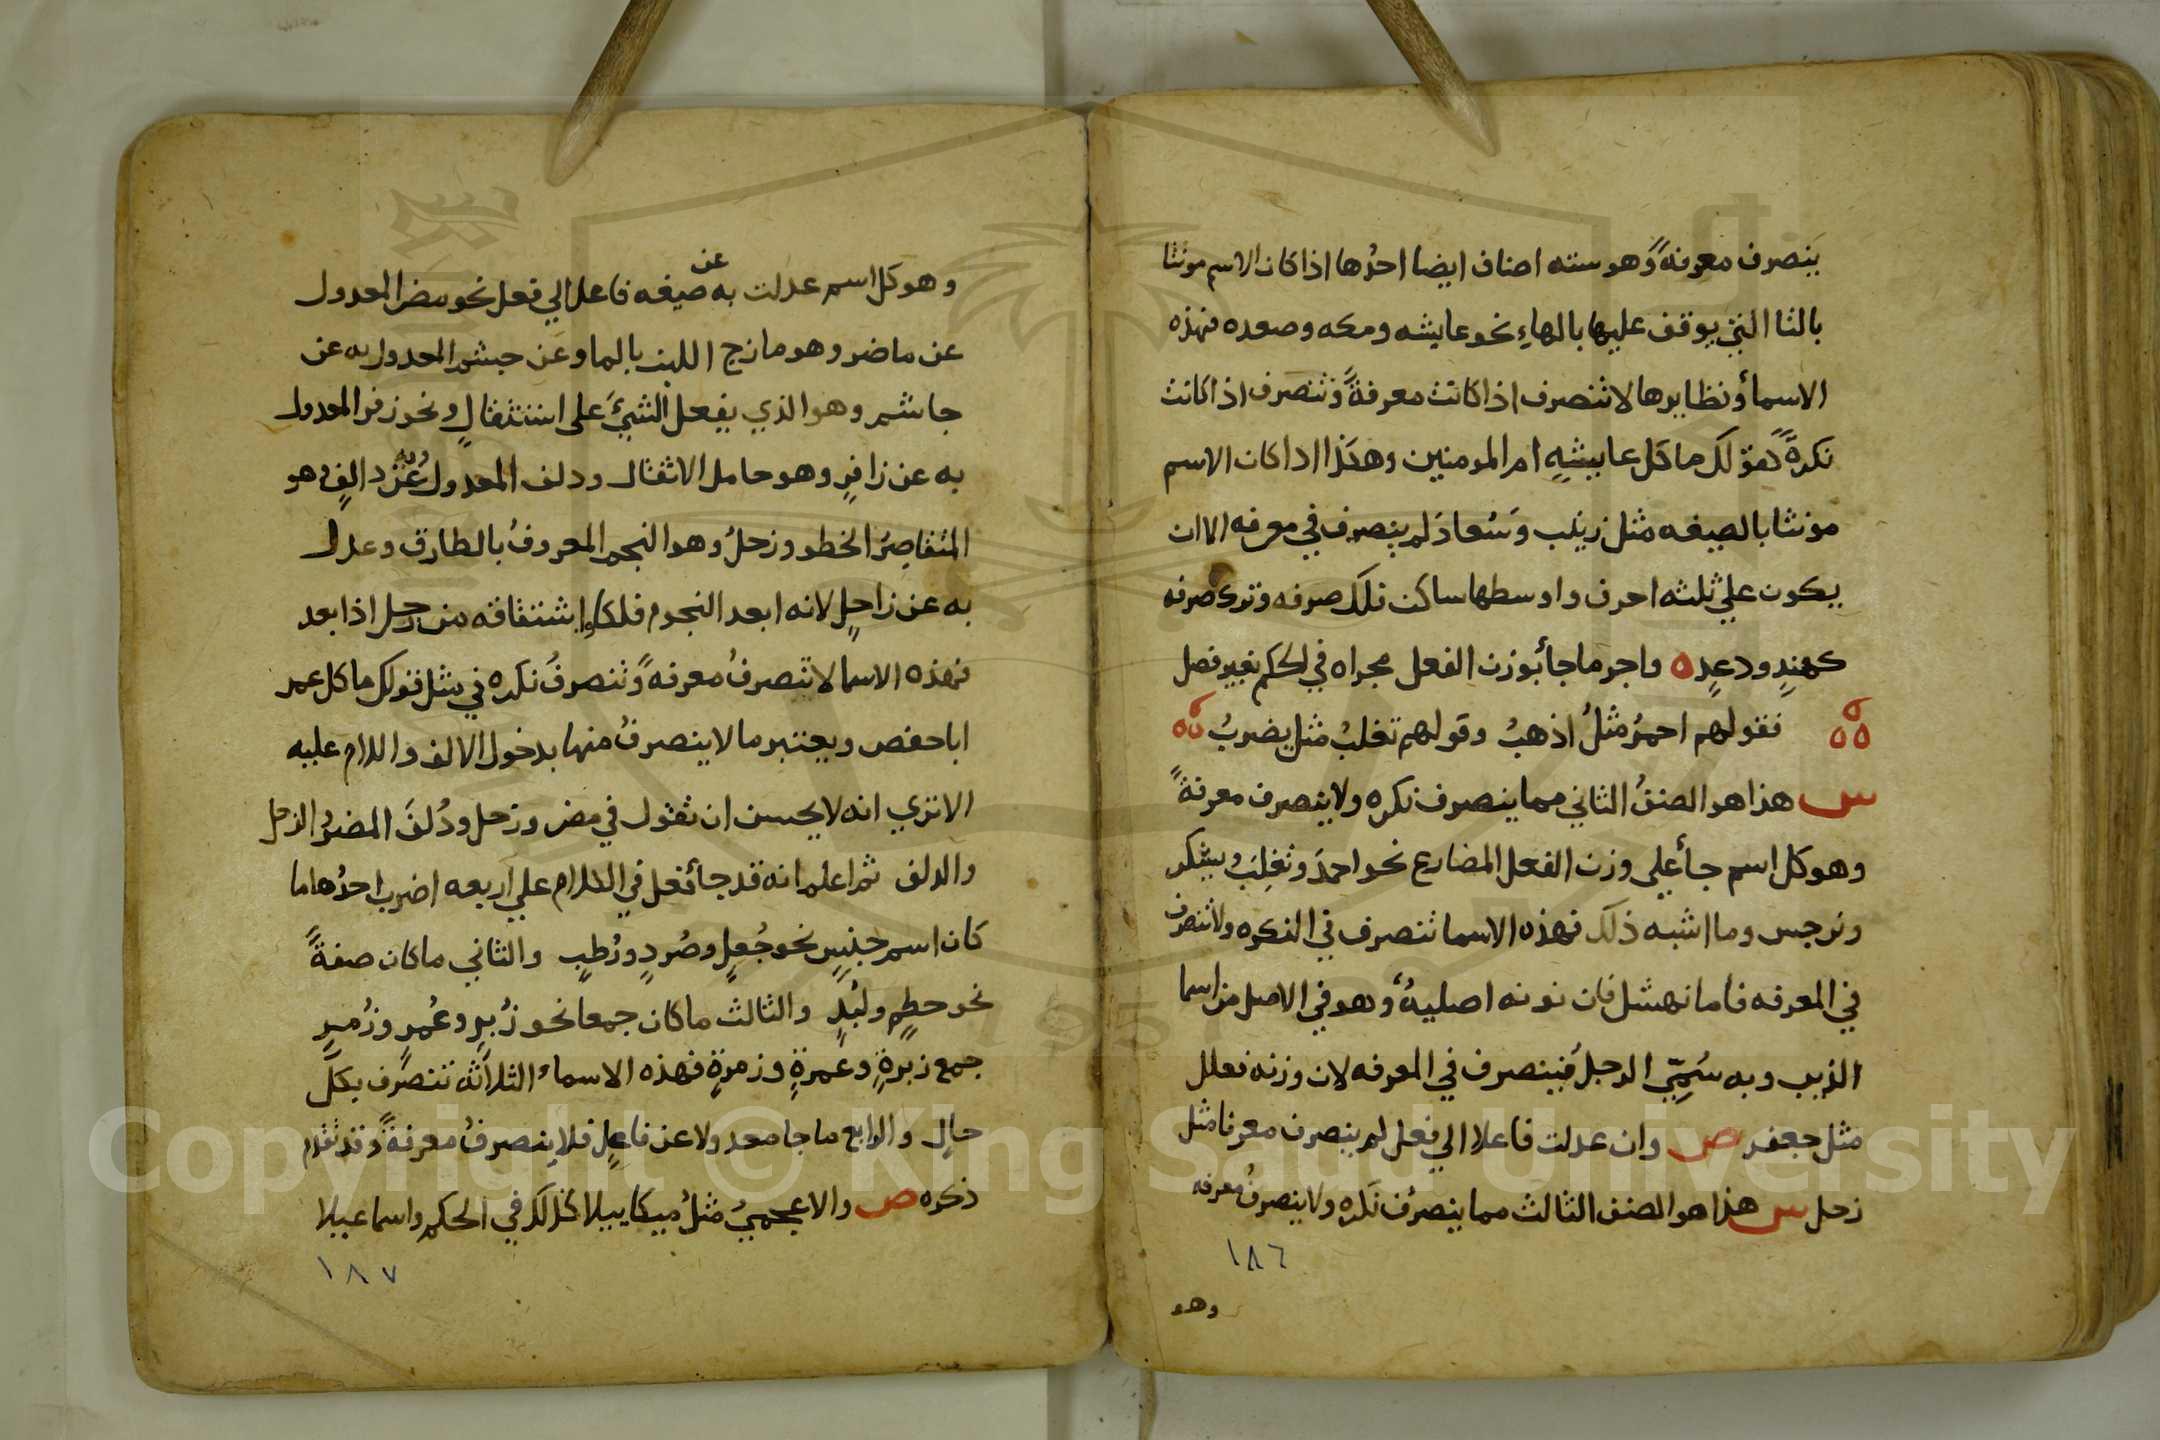 ينصرف معرفةً وهو سته اصناف ايضا احدُها اذا كان الاسم مونثا
بالتا التي يوقف عليها بالهاءِ نحو عايشه ومكه وصعده فهذه
الاسمأ ونظايرها لا تنصرف اذا كانت معرفةً وتنصرف اذا كانت
نكرةً كقولك ما كل عايشهٍ ام المومنين وهكذا اذا كان الاسم
مونثا بالصيغه مثل زينب وسُعادَ لم ينصرف في معرفه الا ان
يكون علي ثلثه احرف واوسطها ساكن فلك صرفه وترك صرفه
كهندٍ ودعدٍ ه واجر ما جأ بوزن الفعل مجراه في الحكم بغير فصل
فقولهم احمدُ مثلُ اذهبُ وقولهم تغلبُ مثل يضربُ
س هذا هو الصنفُ الثاني مما ينصرف نكره ولا ينصرف معرفةً
وهو كل اسم جأ علي وزن الفعل المضارع نحو احمدَ وتغلِبَ ويشكر
ونرجس وما اشبه ذلك فهذه الاسما تنصرف في النكره ولا تنصرف
في المعرفه فاما نهشل فان نونه اصليهٌ وهو في الاصل من اسما
الذيب وبه سُمِّي الرجلُ فينصرف في المعرفه لان وزنه فعلل
مثل جعفر ص وان عدلت فاعلا الي فعل لم ينصرف معرفا مثل
زحل س هذا هو الصنف الثالث مما ينصرُف نَكره ولا ينصرفُ معرفه
١٨٦
وهو
وهو كل اسم عدلت به عن صيغه فاعل الي فعل نحو مضر المعدول
عن ماضر وهو مازج اللبن بالما وعن جشم المعدول به عن
جاشم وهو الذي يفعل الشيَّ على استثقالٍ ونحو زفر المعدول
به عن زافرٍ وهو حامل الاثقال ودلف المعدول به عن دالفٍ وهو
المتقاصِرُ الخطو وزحلُ وهو النجم المعروفُ بالطارق وعدل
به عن زاحلٍ لانه ابعد النجوم فلكا واشتقاقه من زحل اذا بعد
فهذه الاسما لا تنصرفُ معرفهً وتنصرفُ نكره في مثل قولك ما كل عمر
ابا حفص ويعتبر ما لا ينصرفُ منها بدخول الالف واللام عليه
الا تري انه لا يحسن ان تقول في مضر وزحل ودُلفَ المضرُ والزحل
والدلف ثم اعلم انه قد جأ فعل في الكلام علي اربعه اضرب احدُها ما
كان اسم جنسٍ نحو جُعلٍ وصُردٍ ورُطبٍ والثاني ما كان صفةً
نحو حطمٍ ولُبدٍ والثالث ما كان جمعا نحو زُبرٍ وعُمرٍ وزُمرٍ
جمع زبرةٍ وعمرةٍ وزمرةٍ فهذه الاسماءُ الثلاثه تنصرف بكل
حالٍ والرابع ما جا معدولا عن فاعلٍ فلا ينصرفُ معرفةً وقد تقدم
ذكره ص والاعجميُ مثلُ ميكاييلا كذلك في الحكم واسماعيلا
١٨٧
Copyright © King Saud University
1957